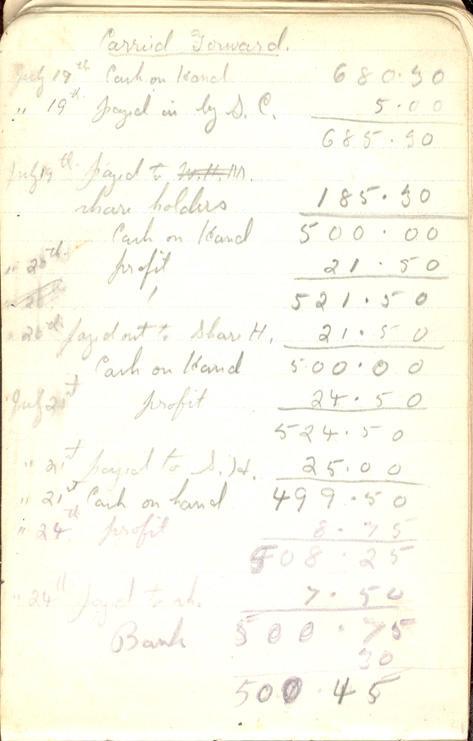 Carried Forward.
July 19th Cash on Hand 680.30
" 19th payed in by S. C. 5.00
685.30
July 19th payed to W. H. M.
share holders 185.30
Cash on Hand 500.00
" 20th profit 21.50
521.50
" 20th payed out to Share H. 21.50
Cash on Hand 500.00
July 21st profit 24.50
524.50
" 21st payed to S. H. 25.00
" 21st Cash on hand 499.50
" 24th profit 8.75
508.25
" 24th payed to sh. 7.50
Bank 500.75
30
500.45